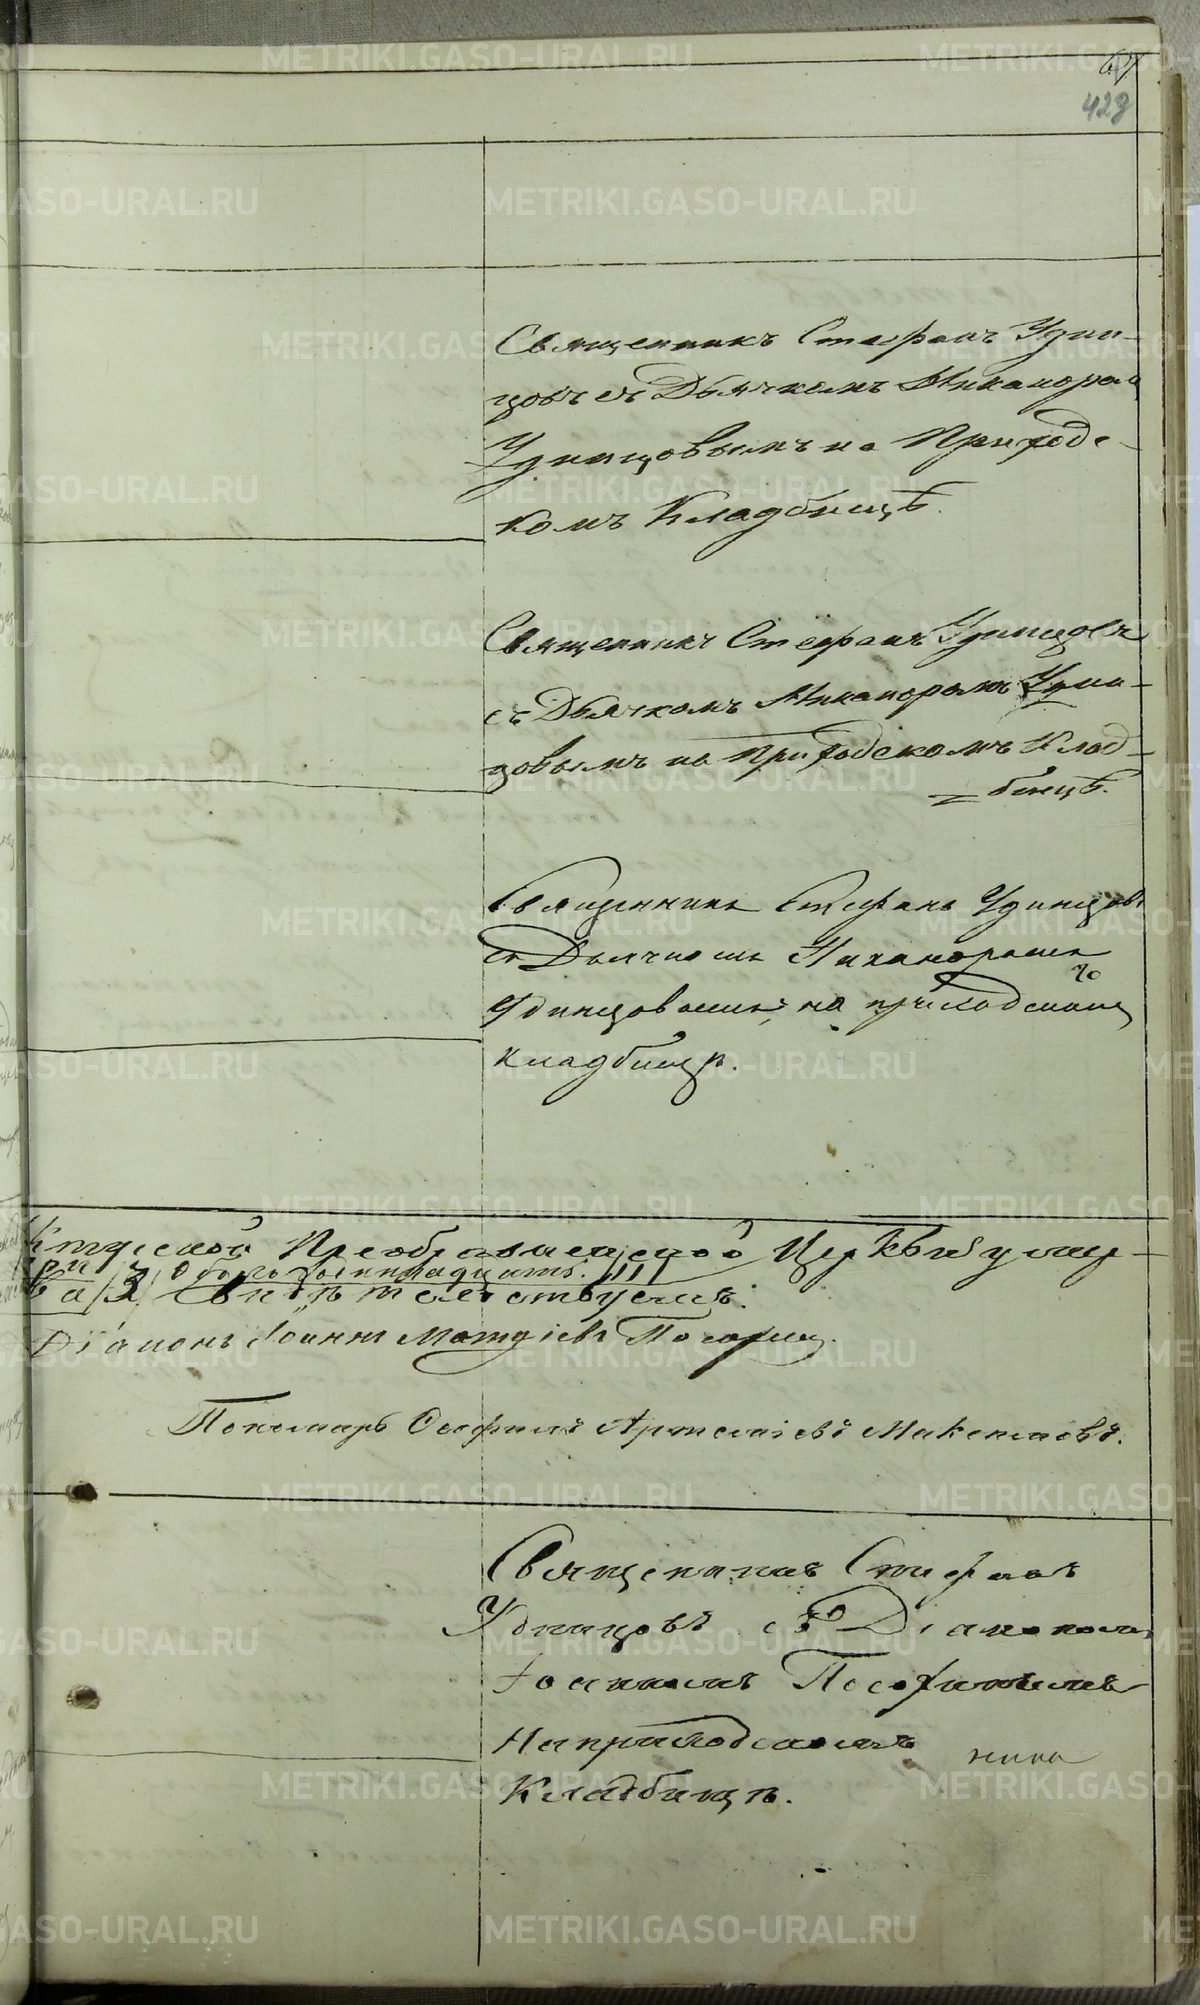 67
428
Священникъ Стефанъ Удин-
цовъ съ Дьячкомъ Никанором
Удинцовымъ на Приходс-
комъ Кладбищѣ.
Священникъ Стефанъ Удинцовъ
съ Дьячкомъ Никаноромъ Удин-
цовымъ на Приходскомъ Клад-
=бищѣ.
Священникъ Стефанъ Удинцовъ
съ Дьячкомъ Никаноромъ
Удинцовымъ, на приходскомъ
кладбищѣ.
Преображенской Церкви умер-
Обоего
Свидѣтельствуемъ.
Діаконъ Іоаннъ Матѳіевъ
Пономарь Ѳеофилъ Артеміевъ
Священникъ Стефанъ
Удинцовъ съ Діакономъ
Іоанномъ
На приходскомъ
Кладбищѣ.
METRIKI.GASO-URAL.RU